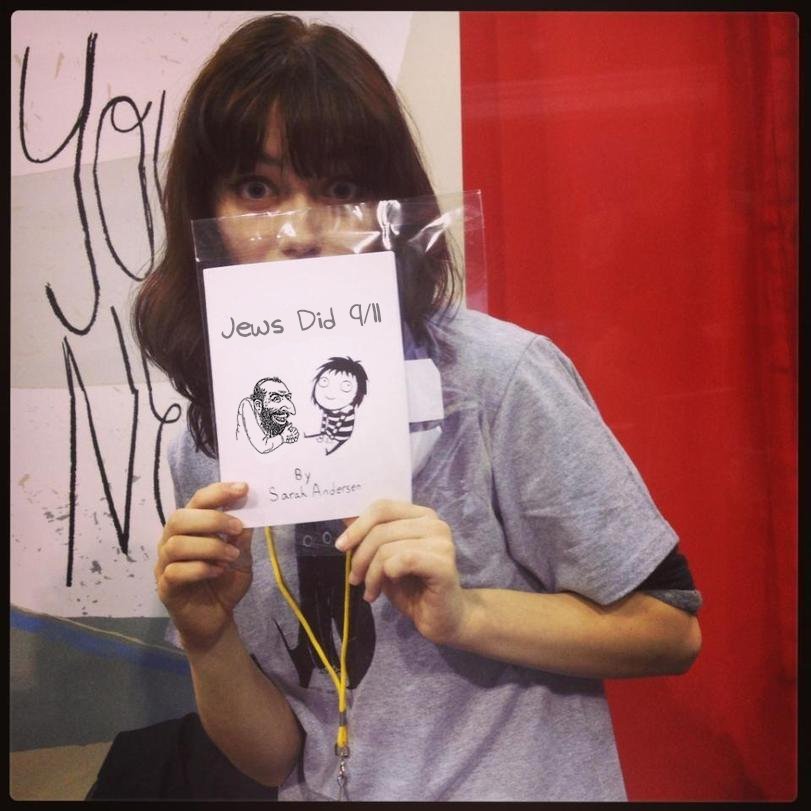 YOU
Jews Did 9/11
By
Sarah Andersen